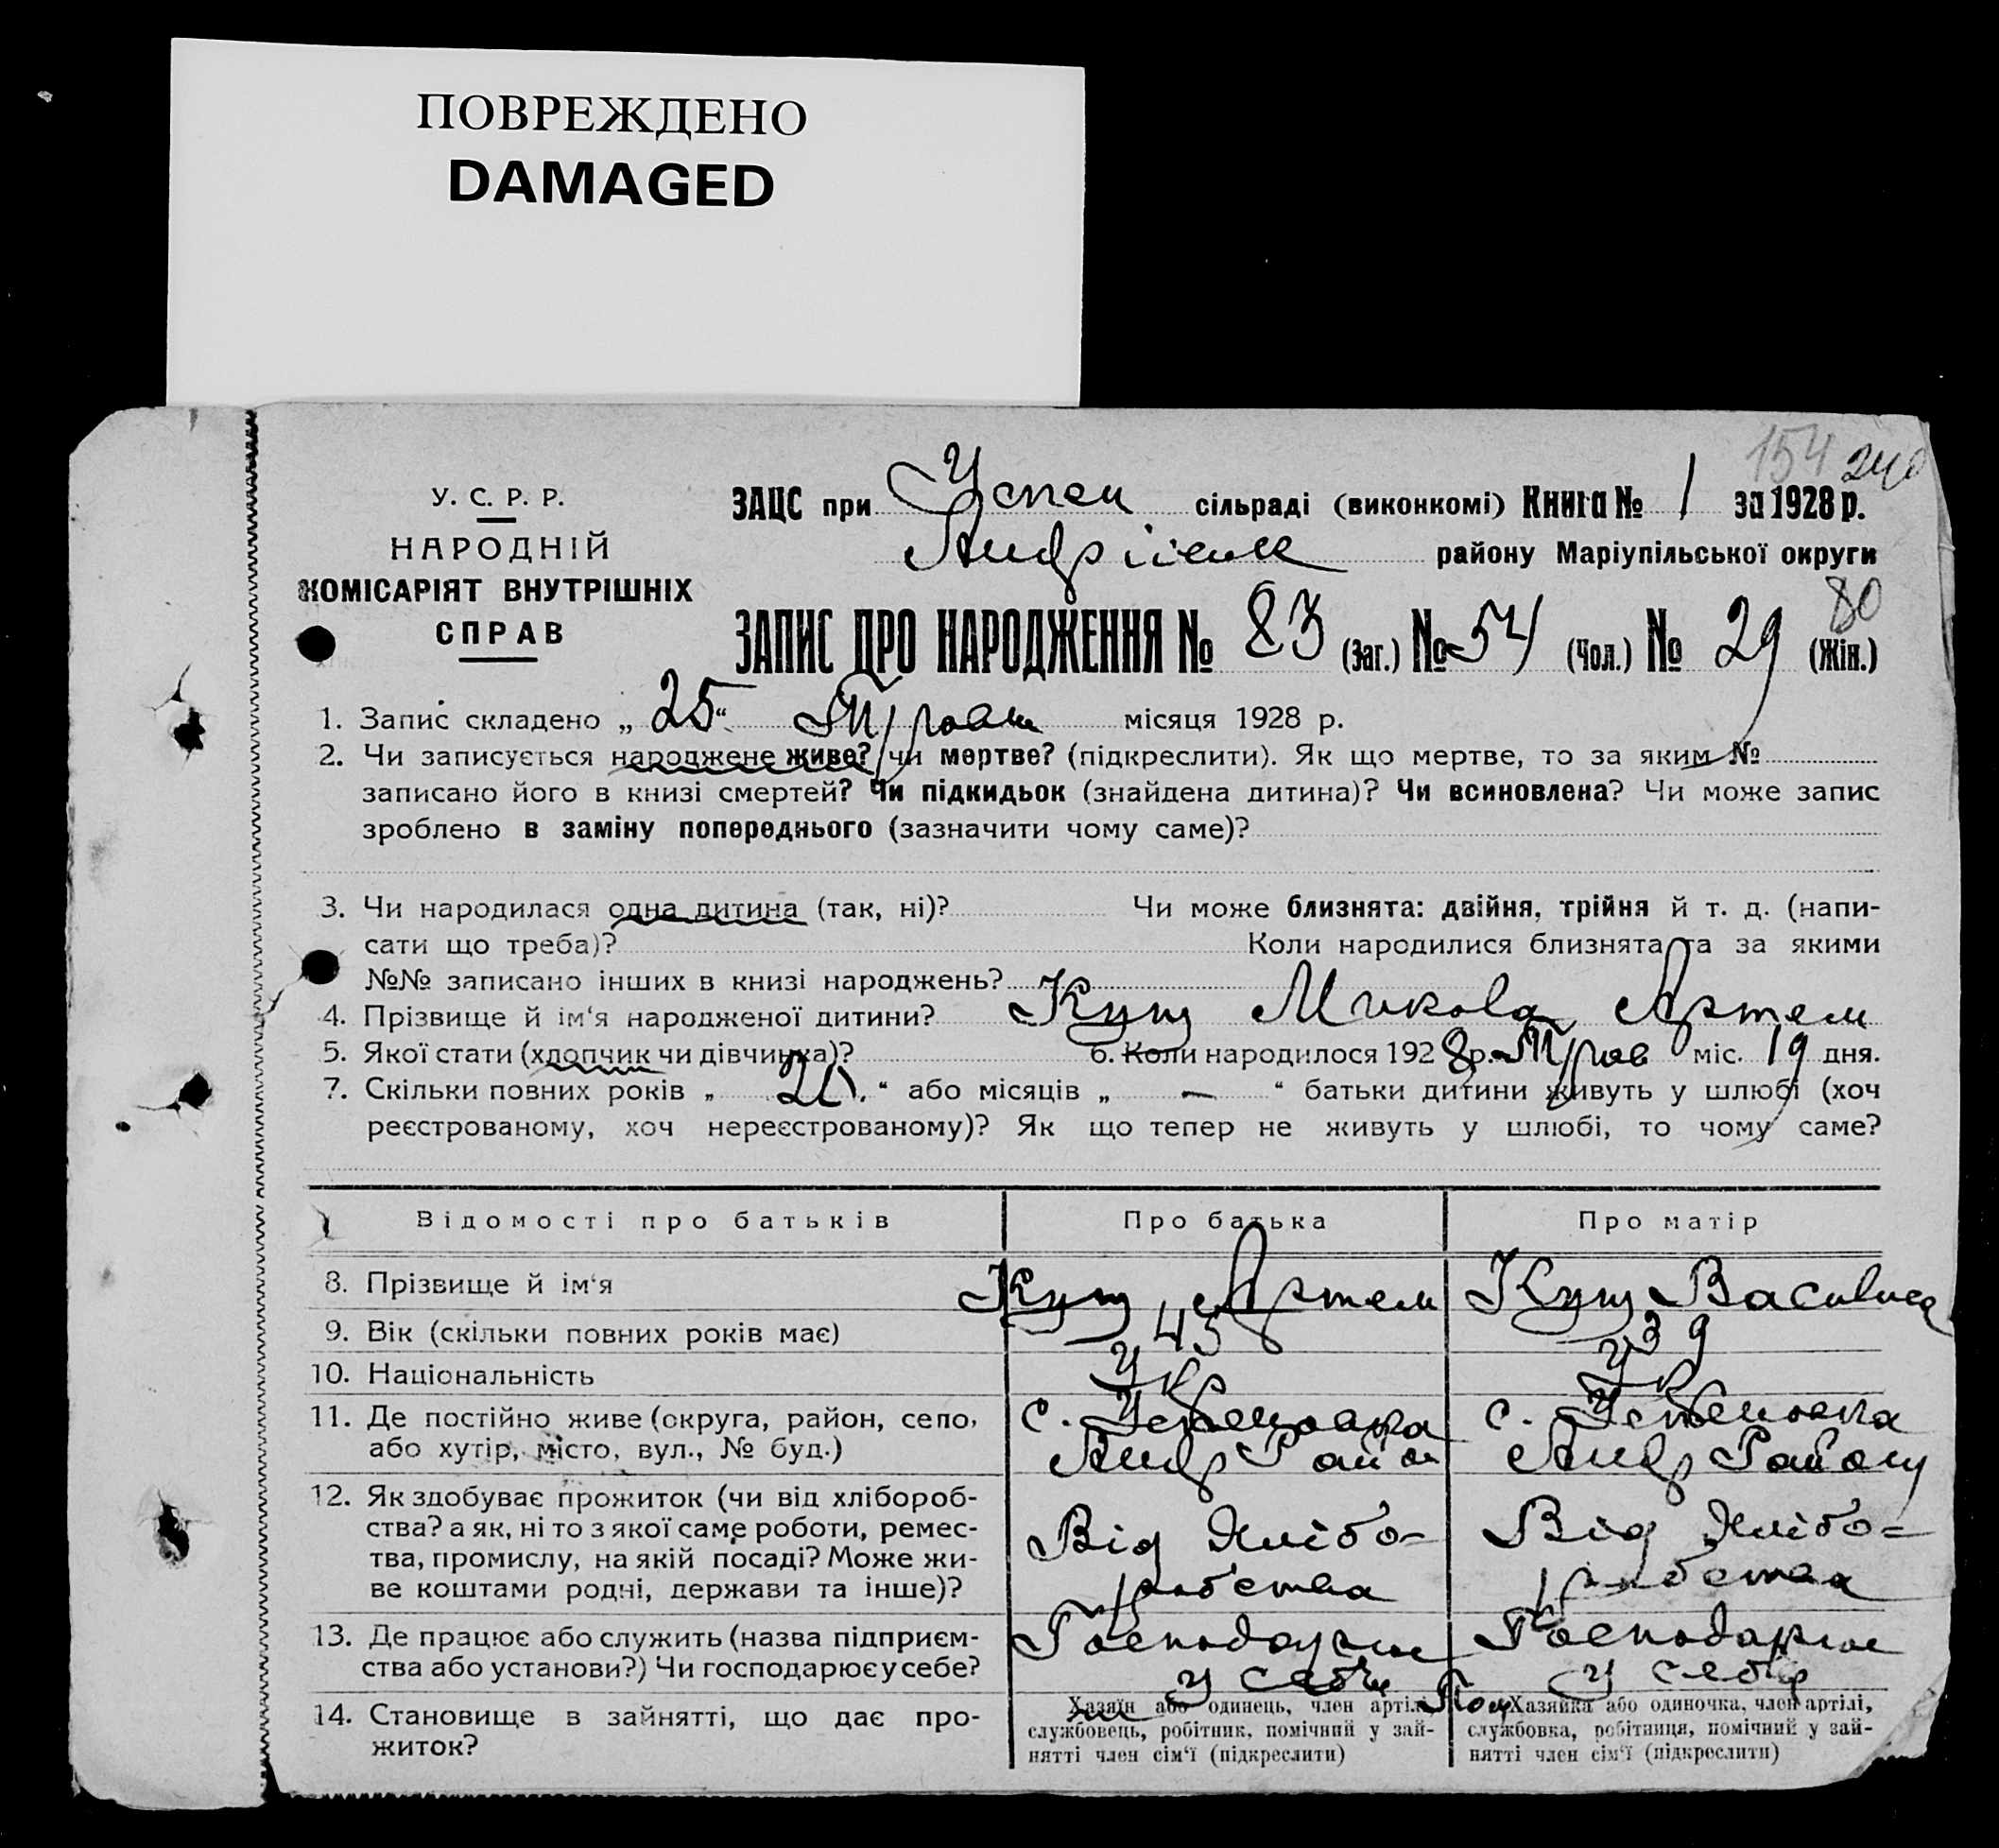 ПОВРЕЖДЕНО
DAMAGED
154 240
У. С. Р. Р.
НАРОДНІЙ
КОМІСАРІЯТ ВНУТРІШНІХ
СПРАВ
ЗАЦС при Успен сільраді (виконкомі) Книга № 1 за 1928 р.
Андріївск району Маріупільської округи
80
ЗАПИС ПРО НАРОДЖЕННЯ № 83 (Заг.) № 54 (Чол.) № 29 (Жін.)
1. Запис складено „ 25 “ Травня місяця 1928 р.
2. Чи записується народжене живе? чи мертве? (підкреслити). Як що мертве, то за яким №
записано його в книзі смертей? Чи підкидьок (знайдена дитина)? Чи всиновлена? Чи може запис
зроблено в заміну попереднього (зазначити чому саме)?
3. Чи народилася одна дитина (так, ні)? Чи може близнята: двійня, трійня й т. д. (напи-
сати що треба)? Коли народилися близнята та за якими
№№ записано інших в книзі народжень?
4. Прізвище й ім‘я народженої дитини? Кущ Микола Артем
5. Якої стати (хлопчик чи дівчинка)? 6. Коли народилося 192 8 р. Трав міс. 19 дня.
7. Скільки повних років „ 20 “ або місяців „ — “ батьки дитини живуть у шлюбі (хоч
реєстрованому, хоч нереєстрованому)? Як що тепер не живуть у шлюбі, то чому саме?
Відомості про батьків Про батька Про матір
8. Прізвище й ім‘я Кущ Артем Кущ Василиса
9. Вік (скільки повних років має) 45 39
10. Національність Укр Укр
11. Де постійно живе (округа, район, село, с. Успеновка с. Успеновка
або хутір, місто, вул., № буд.) Андр Район Андр Району
12. Як здобуває прожиток (чи від хлібороб-
ства? а як, ні то з якої саме роботи, ремес- Від Хлібо= Від Хлібо=
тва, промислу, на якій посаді? Може жи-
ве коштами родні, держави та інше)? робства робства
13. Де працює або служить (назва підприєм- Господарює Господарює
ства або установи?) Чи господарює у себе? у себе у себе
14. Становище в зайнятті, що дає про-
житок?
Хазяїн або одинець, член артілі,
службовець, робітник, помічний у зай-
нятті член сім‘ї (підкреслити)
Хазяйка або одиночка, член артілі,
службовка, робітниця, помічний у зай-
нятті член сім‘ї (підкреслити)